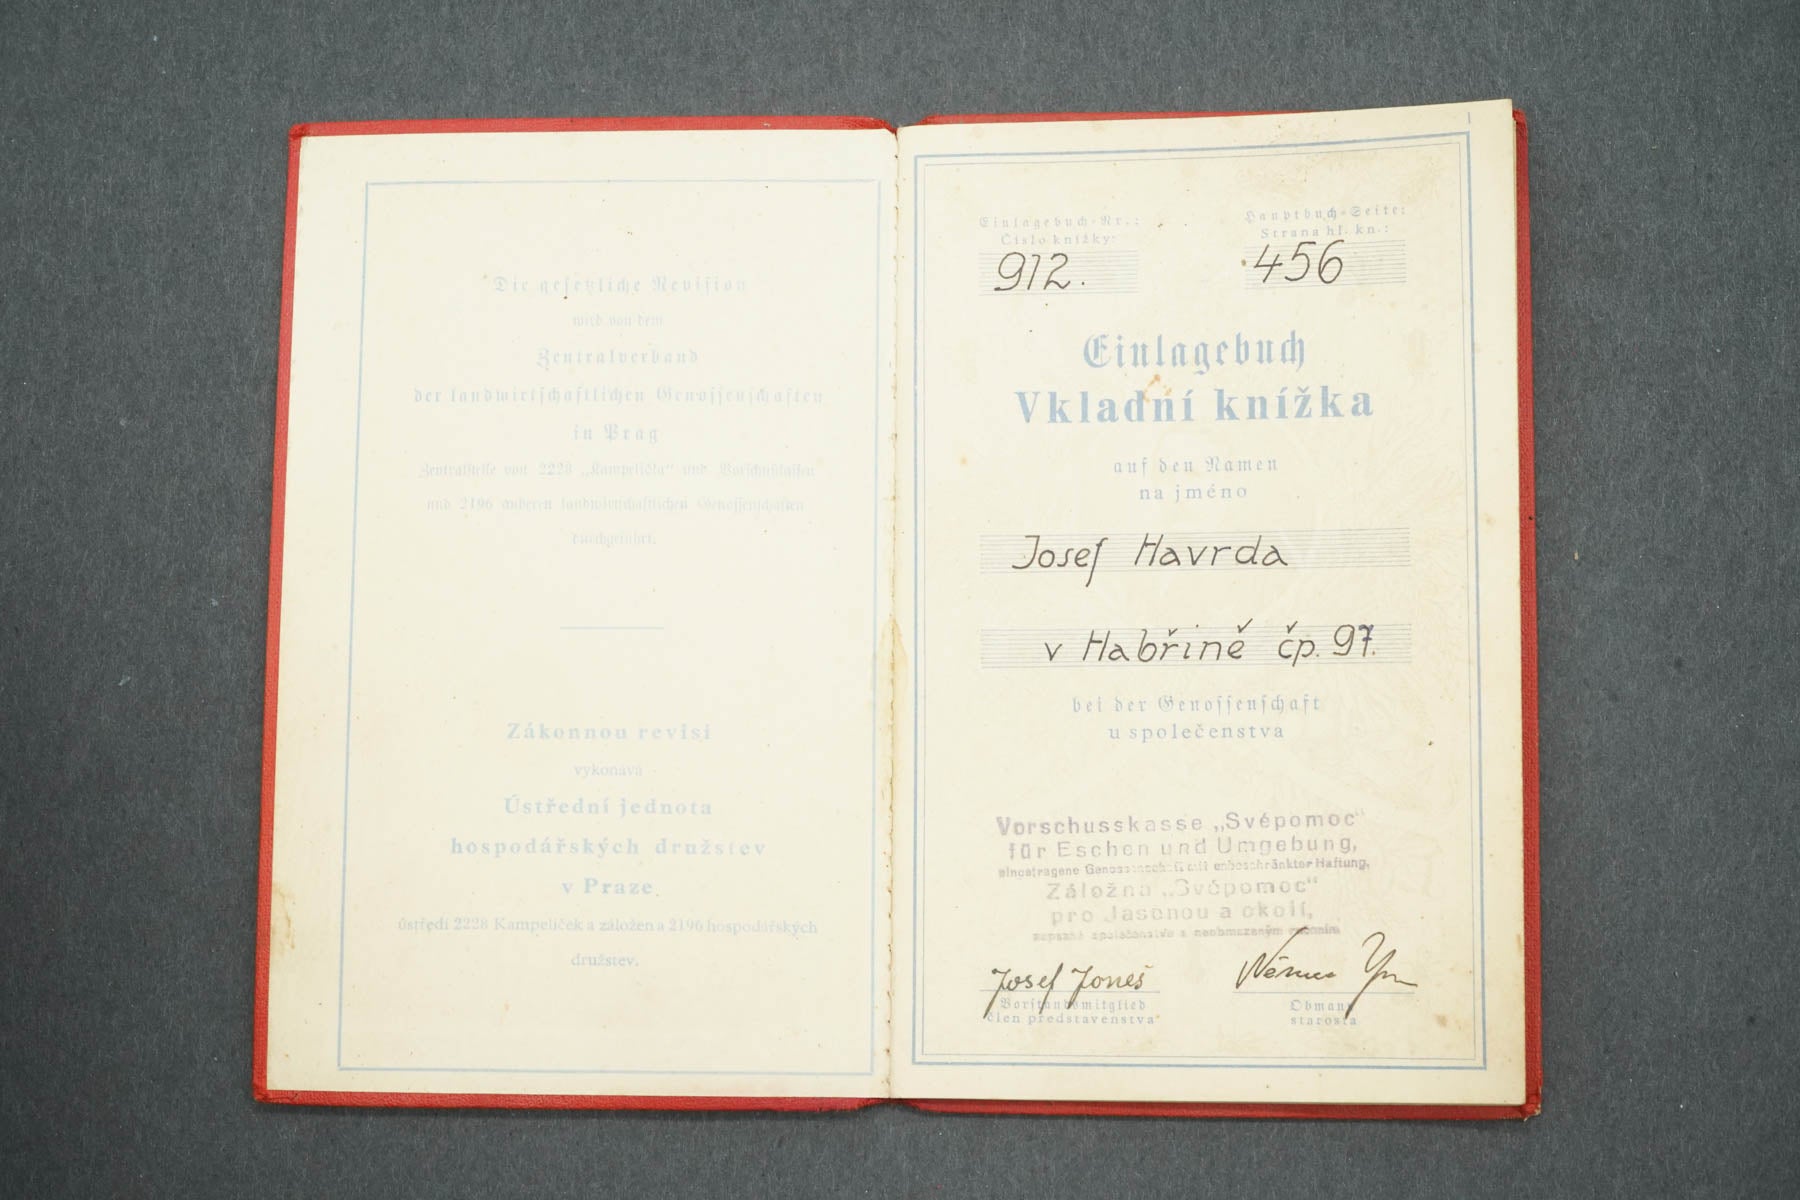 Die gesetzliche Revision
wird von dem
Zentralverband
der landwirtschaftlichen Genossenschaften
in Prag
Zentralstelle von 2228 „Kampelička“ und Vorschußkassen
und 2196 anderen landwirtschaftlichen Genossenschaften
durchgeführt.
Zákonnou revisi
vykonává
Ústřední jednota
hospodářských družstev
v Praze,
ústředí 2228 Kampeliček a záložen a 2196 hospodářských
družstev.
Einlagebuch-Nr.:
Číslo knížky:
912.
Hauptbuch-Seite:
Strana hl. kn.:
456
Einlagebuch
Vkladní knížka
auf den Namen
na jméno
Josef Havrda
v Habřině čp. 97.
bei der Genossenschaft
u společenstva
Vorschusskasse „Svépomoc“
für Eschen und Umgebung,
eingetragene Genossenschaft mit unbeschränkter Haftung,
Záložna „Svépomoc“
pro Jasenou a okolí,
zapsané společenstvo s neobmezeným ručením
Josef Joneš
Vorstandsmitglied
člen představenstva
Obmann
starosta